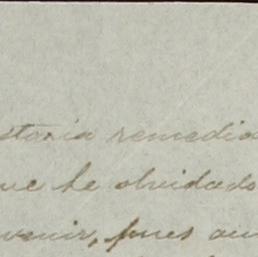 staria remedia
ue he olvidado
venir, pues au